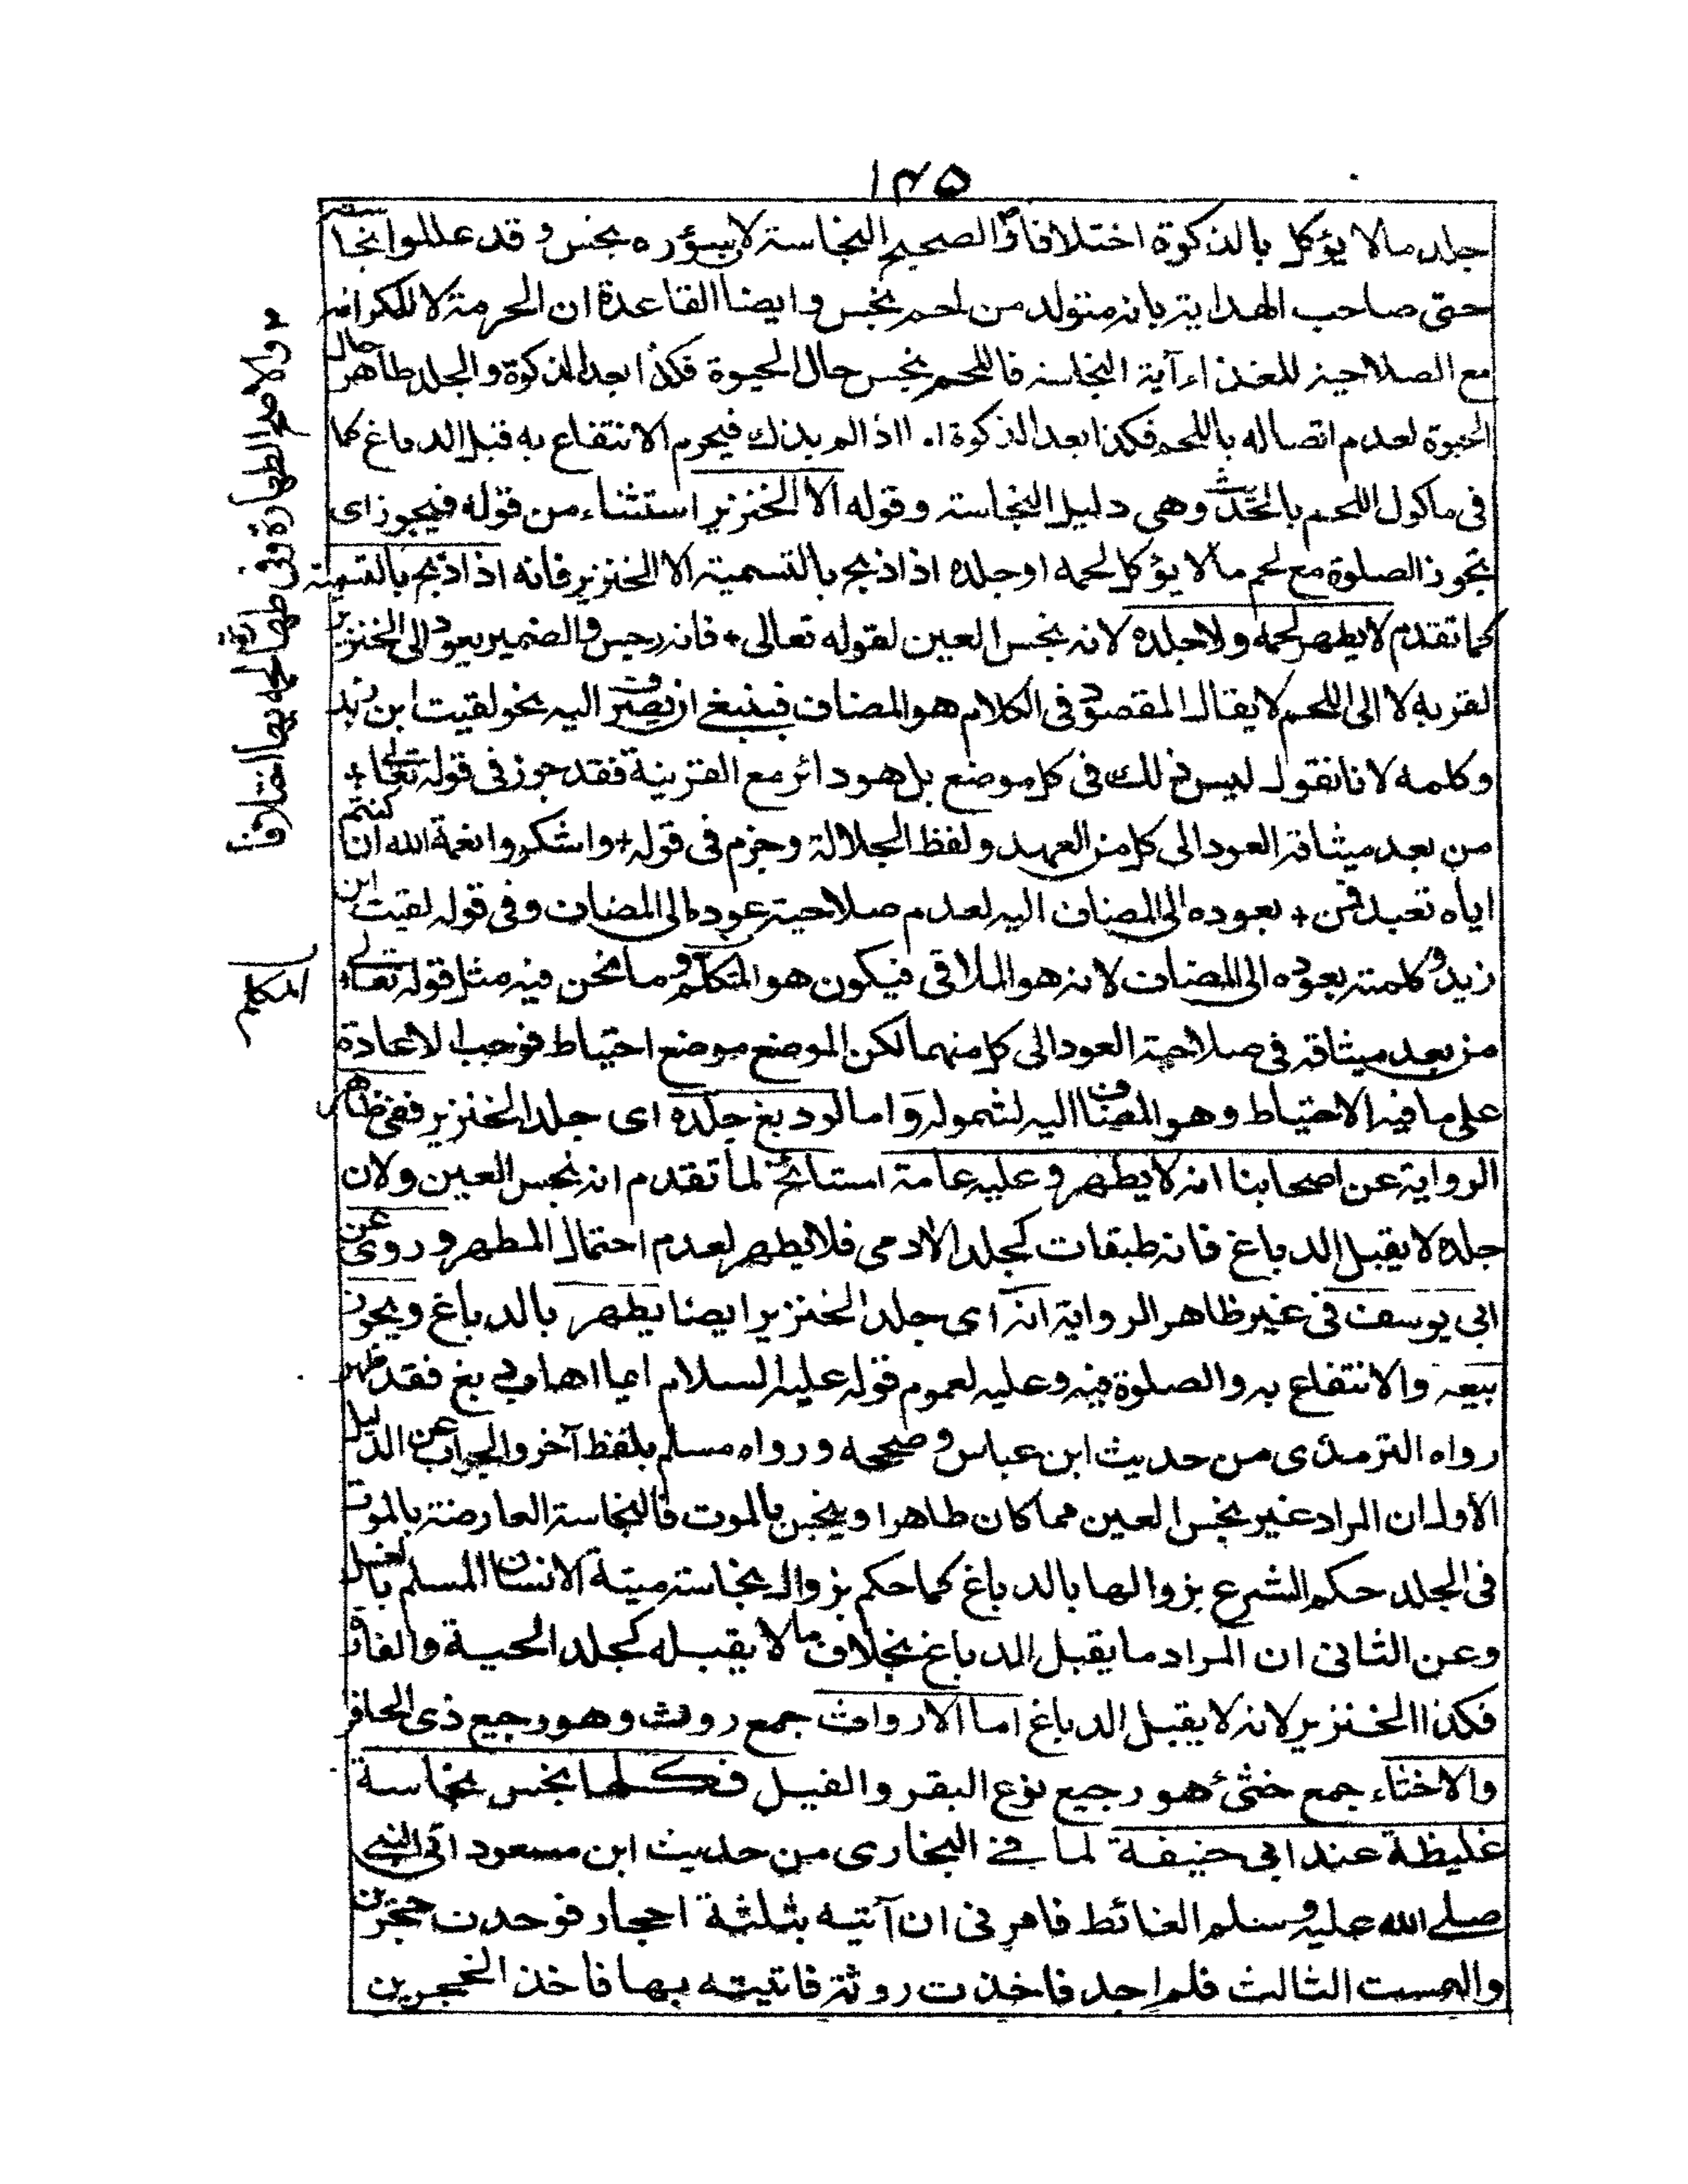 ١٤٥
جلد مالا يؤكل بالذكوة اختلافا والصحيح النجاسة لان سؤره نجس وقد عللوا نجاسته
حتى صاحب الهداية بانه متولد من لحم نجس وايضا القاعدة ان الحرمة لا للكرامة
مع الصلاحية للغذاء آية النجاسة فاللحم نجس حال الحيوة فكذا بعد الذكوة والجلد طاهر حال
الحيوة لعدم اتصاله باللحم فكذا بعد الذكوة اه اذا لم يذك فيحرم الانتفاع به قبل الدباغ كما
فى ماكول اللحم وهى دليل النجاسة وقوله الا الخنزير استثناء من قوله فيجوز اى
تجوز الصلوة مع لحم مالا يؤكل لحمه او جلده اذا ذبح بالتسمية الا الخنزير فانه اذا ذبح بالتسمية
كما تقدم لا يطهر لحمه ولا جلده لانه نجس العين لقوله تعالى + فانه رجس والضمير يعود الى الخنزير
لقربه لا الى اللحم لا يقال المقصود فى الكلام هو المضاف فينبغى ان يصرف اليه نحو لقيت ابن زيد
وكلمه لانا نقول ليس ذلك فى كل موضع بل هو دائر مع القرينة فقد جوز فى قوله تعالى +
من بعد ميثاقه العود الى كل من العهد ولفظ الجلالة وجزم فى قوله + واشكروا نعمة الله ان كنتم
اياه تعبدون + بعوده الى المضاف اليه لعدم صلاحية عوده الى المضاف وفى قوله لقيت ابن
زيد وكلمته بعوده الى المضاف لانه هو الملاقى فيكون هو المتكلم وما نحن فيه مثل قوله تعالى +
من بعد ميثاقه فى صلاحية العود الى كل منهما لكن الموضع موضع احتياط فوجب الاعادة
على ما فيه الاحتياط وهو المضاف اليه لشموله واما لو دبغ جلده اى جلد الخنزير ففى ظاهر
الرواية عن اصحابنا انه لا يطهر وعليه عامة المشائخ لما تقدم انه نجس العين ولان
جلده لا يقبل الدباغ فانه طبقات كجلد الآدمى فلا يطهر لعدم احتمال المطهر وروى عن
ابى يوسف فى غير ظاهر الرواية انه اى جلد الخنزير ايضا يطهر بالدباغ ويجوز
بيعه والانتفاع به والصلوة فيه وعليه لعموم قوله عليه السلام ايما اهاب دبغ فقد طهر
رواه الترمذى من حديث ابن عباس وصححه ورواه مسلم بلفظ آخر والجواب عن الدليل
الاول ان المراد غير نجس العين مما كان طاهرا وينجس بالموت فالنجاسة العارضة بالموت
فى الجلد حكم الشرع بزوالها بالدباغ كما حكم بزوال نجاسة ميتة الانسان المسلم بالغسل
وعن الثانى ان المراد ما يقبل الدباغ بخلاف ما لا يقبله كجلد الحية والفار
فكذا الخنزير لانه لا يقبل الدباغ اما الارواث جمع روث وهو رجيع ذى الحافر
والاخثاء جمع خثى هو رجيع نوع البقر والفيل فكلها نجس نجاسة
غليظة عند ابى حنيفة لما فى البخارى من حديث ابن مسعود اتى النبى
صلى الله عليه وسلم الغائط فامرنى ان آتيه بثلثة احجار فوجدت حجرين
والتمست الثالث فلم اجد فاخذت روثة فاتيته بها فاخذ الحجرين
ولا صح الطهارة وفى طهارة لحمه بها اختلاف
المكلم